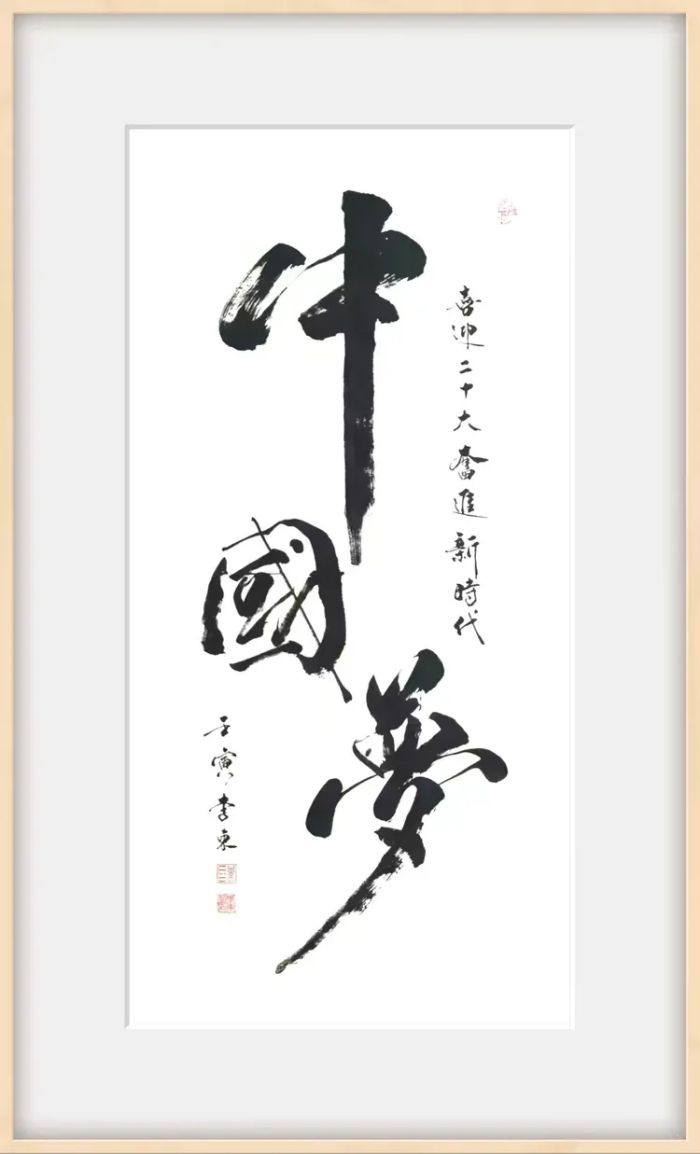 中國夢
喜迎二十大奮進新時代
壬寅李東